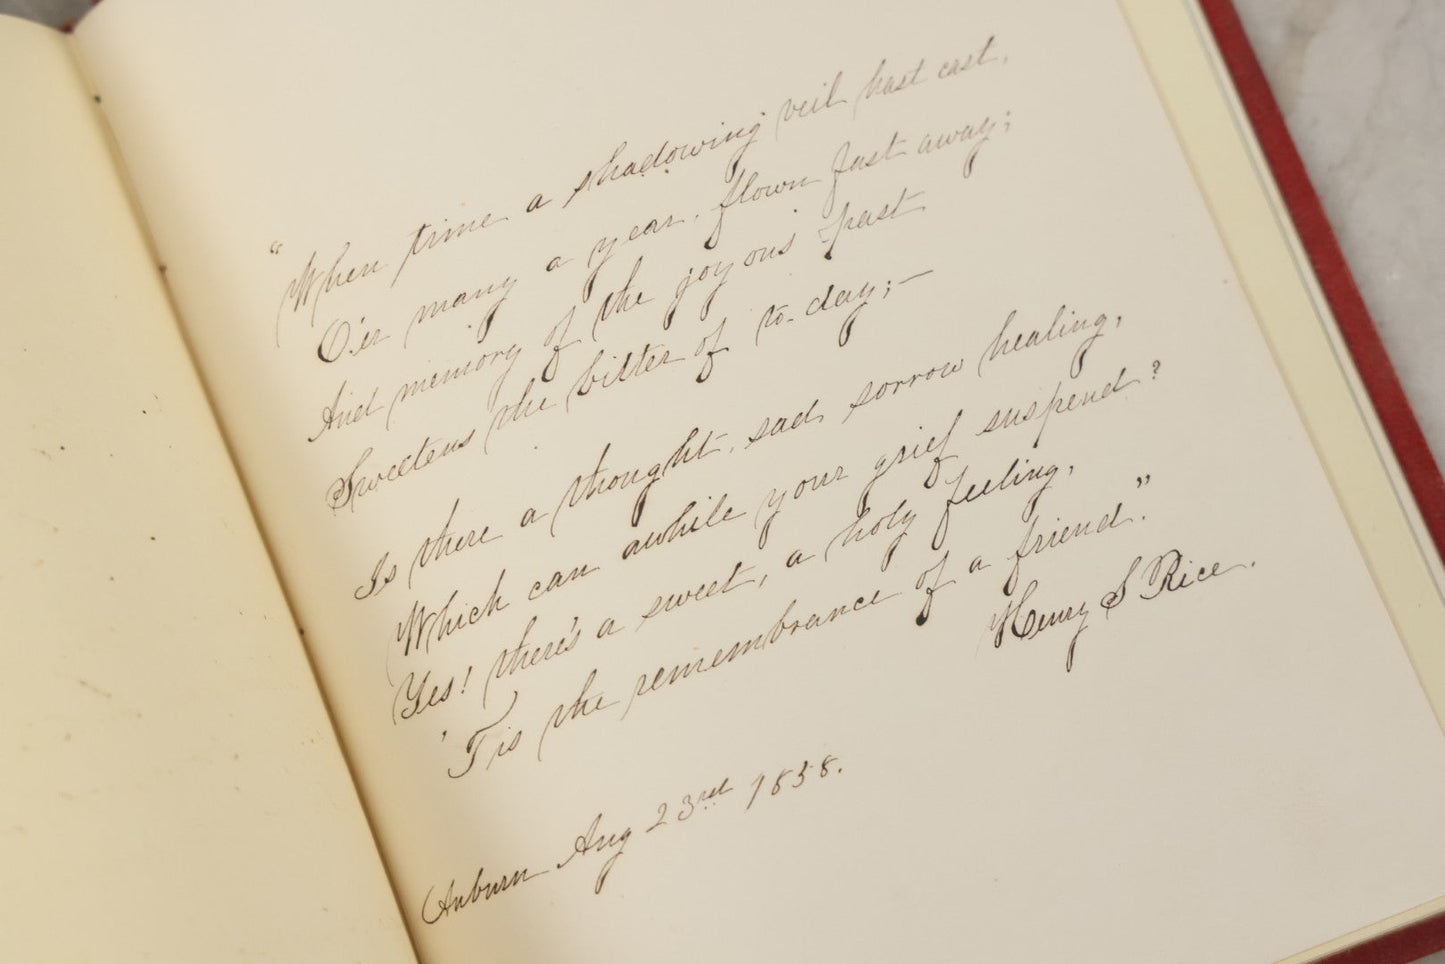 "When time a shadowing veil hast cast,
O'er many a year, flown fast away;
And memory of the joyous past
Sweetens the bitter of to-day;—
Is there a thought, sad sorrow healing,
Which can awhile your grief suspend?
Yes! there's a sweet, a holy feeling,
'Tis the remembrance of a friend."
Henry S Rice.
Auburn Aug 23rd 1858.